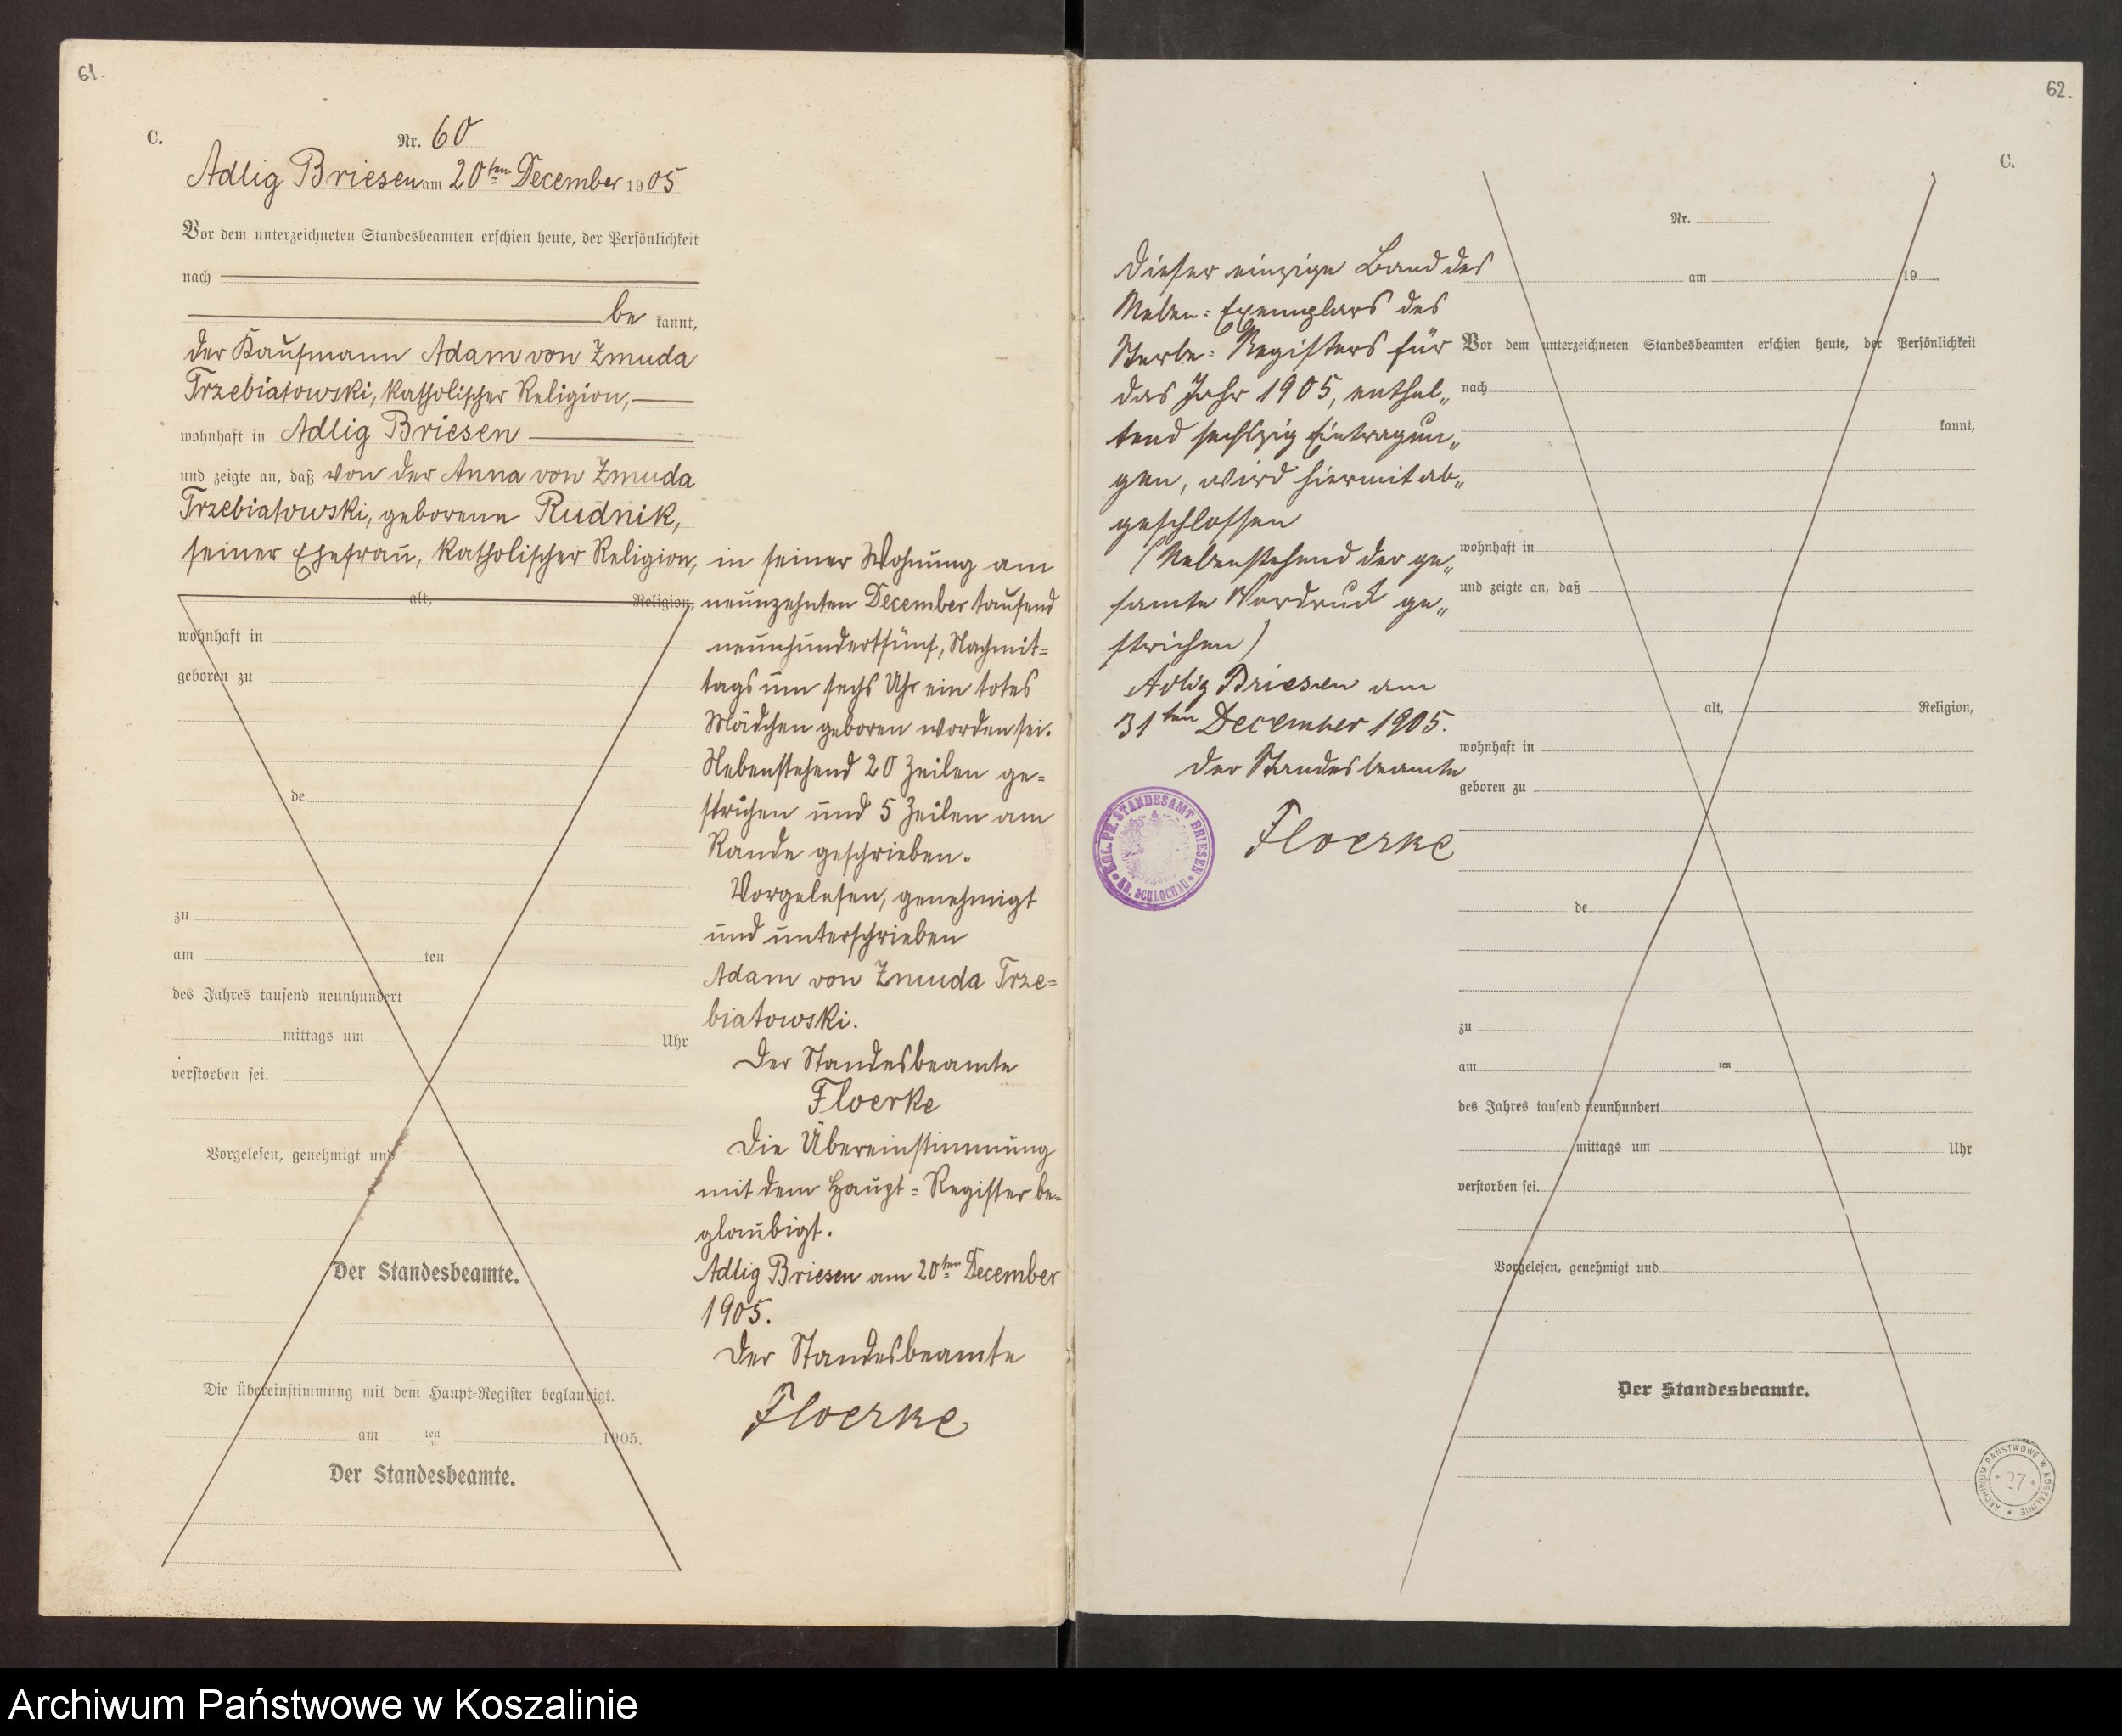 61.
C.
Nr. 60
Adlig Briesen am 20ten December 1905
Vor dem unterzeichneten Standesbeamten erschien heute, der Persönlichkeit
nach
be kannt,
der Kaufmann Adam von Zmuda
Trzebiatowski, katholischer Religion,
wohnhaft in Adlig Briesen
und zeigte an, daß von der Anna von Zmuda
Trzebiatowski, geborene Rudnik,
seiner Ehefrau, katholischer Religion,
alt, Religion,
wohnhaft in
geboren zu
de
zu
am ten
des Jahres tausend neunhundert
mittags um Uhr
verstorben sei.
Vorgelesen, genehmigt und
Der Standesbeamte.
Die Übereinstimmung mit dem Haupt-Register beglaubigt.
am ten 1905.
Der Standesbeamte.
in seiner Wohnung am
neunzehnten December tausend
neunhundertfünf, Nachmit=
tags um sechs Uhr ein totes
Mädchen geboren worden sei.
Nebenstehend 20 Zeilen ge=
strichen und 5 Zeilen am
Rande geschrieben.
Vorgelesen, genehmigt
und unterschrieben
Adam von Zmuda Trze=
biatowski.
Der Standesbeamte
Floerke
Die Übereinstimmung
mit dem Haupt=Register be=
glaubigt.
Adlig Briesen am 20ten December
1905.
Der Standesbeamte
Floerke
62.
C.
Dieser einzige Band des
Neben=Exemplars des
Sterbe=Registers für
das Jahr 1905, enthal„
tend sechszig Eintragun„
gen, wird hiermit ab„
geschlossen
(Nebenstehend der ge„
samte Vordruck ge„
strichen)
Adlig Briesen am
31ten December 1905.
Der Standesbeamte
Floerke
KGL. PR. STANDESAMT BRIESEN
KR. SCHLOCHAU
Nr.
am 19
Vor dem unterzeichneten Standesbeamten erschien heute, der Persönlichkeit
nach
kannt,
wohnhaft in
und zeigte an, daß
alt, Religion,
wohnhaft in
geboren zu
de
zu
am ten
des Jahres tausend neunhundert
mittags um Uhr
verstorben sei.
Vorgelesen, genehmigt und
Der Standesbeamte.
ARCHIWUM PAŃSTWOWE W KOSZALINIE
27
Archiwum Państwowe w Koszalinie